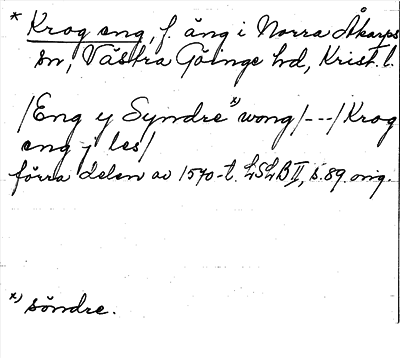 * Krog eng, f. äng i Norra Åkarps
sn, Västra Göinge hd, Krist. l.
/Eng y Syndre *) wong/---/Krog
eng j les/
förra delen av 1570-t. LSLB II, s. 89. orig.
*) söndre.